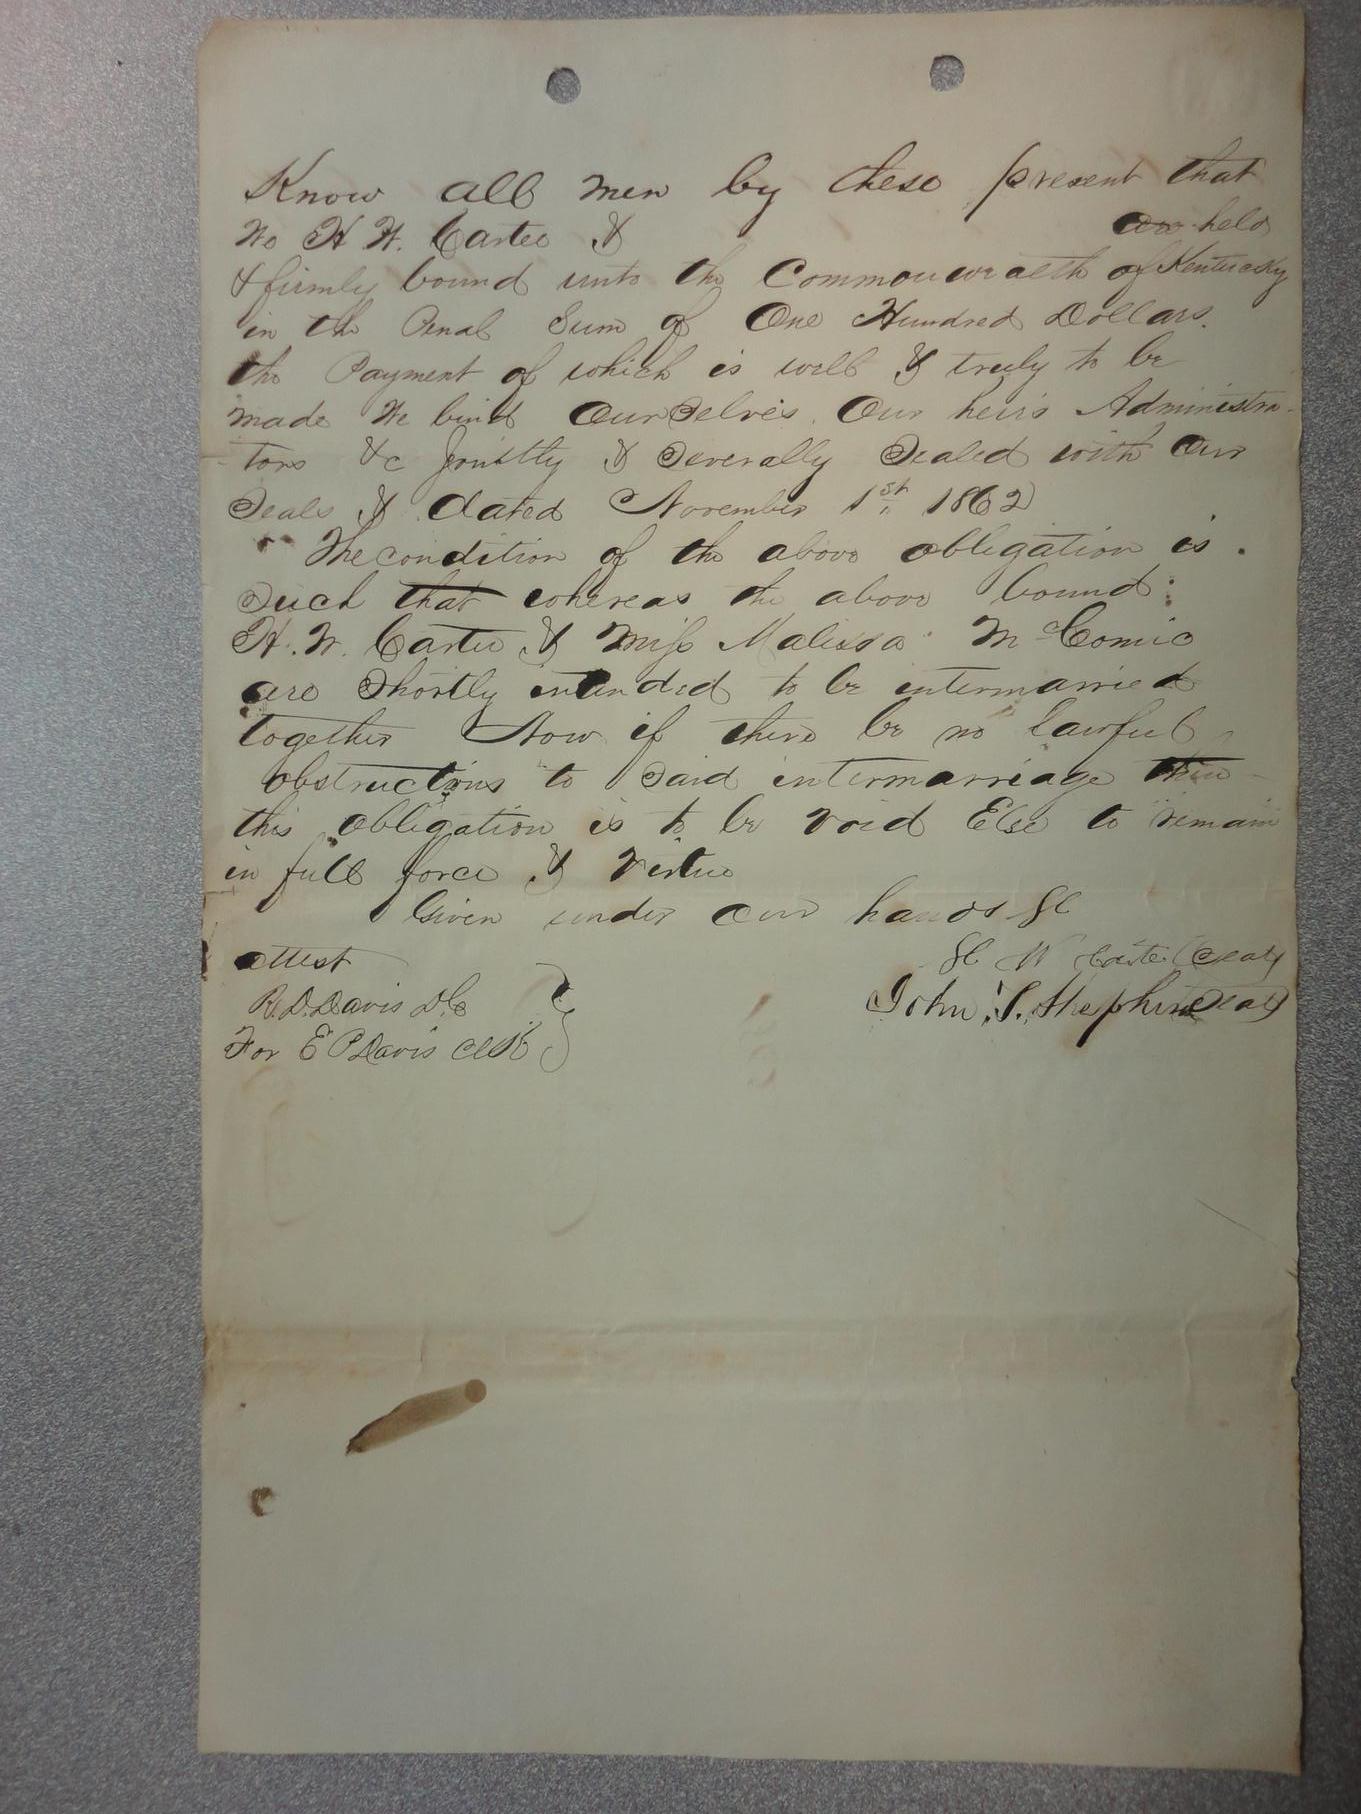 Know all men by these present that
We H W. Carter & are held
& firmly bound unto the Commonwealth of Kentucky
in the Penal Sum of One Hundred Dollars.
the Payment of which is well & truly to be
made We bind Ourselves Our heirs Administra-
tors &c Jointly & Severally Sealed with Our
Seals & dated November 1st 1862
The condition of the above obligation is
Such that whereas the above bound
H. W. Carter & Miss Malissa McComic
are Shortly intended to be intermarried
together Now if there be no lawful
obstructions to Said intermarriage then
this obligation is to be void Else to remain
in full force & virtue
Given under our hands &c
attest
H W Carter (Seal)
R. D. Davis D.C
John S. Stephins (Seal)
For E P Davis Clk